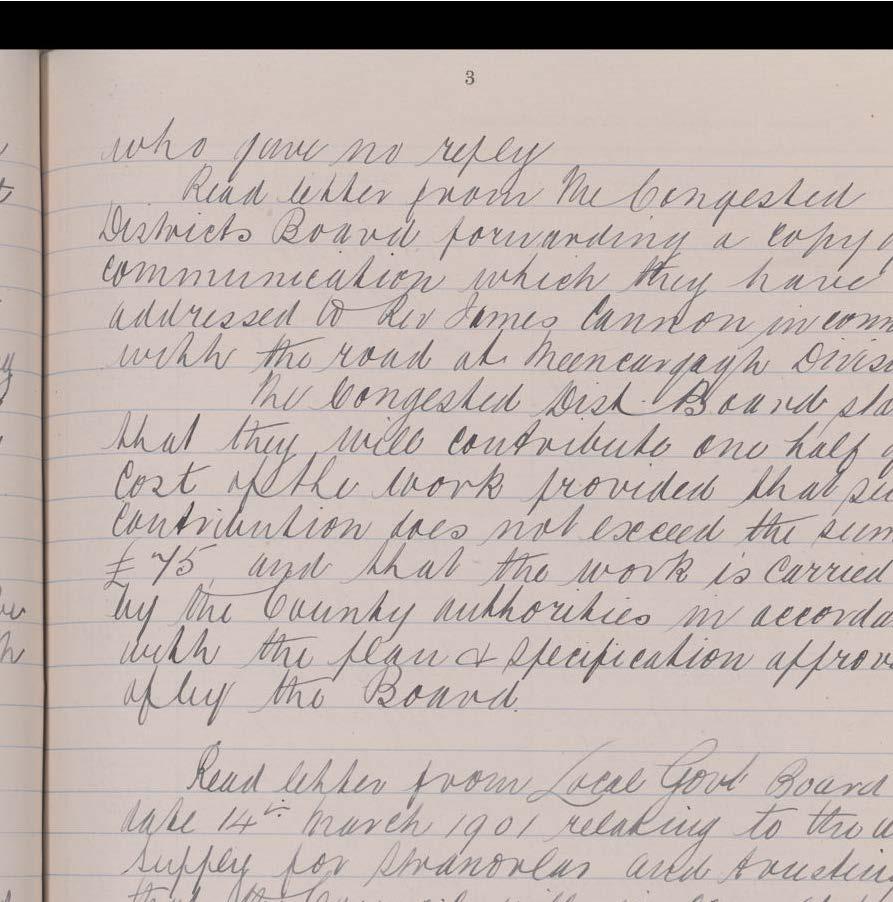 3
who gave no reply
Read letter from The Congested
Districts Board forwarding a copy
communication which they have
addressed to Rev James Cannon in conn
with the road at Meencargagh Divis
The Congested Dist. Board sta
that they will contribute one half
cost of the work provided that su
contribution does not exceed the sum
£75 and that the work is carried
by the County authorities in accorda
with the plan & specification approv
of by the Board.
Read letter from Local Govt Board
date 14th March 1901 relating to the
supply for Stranorlar and trustin
that the Council will